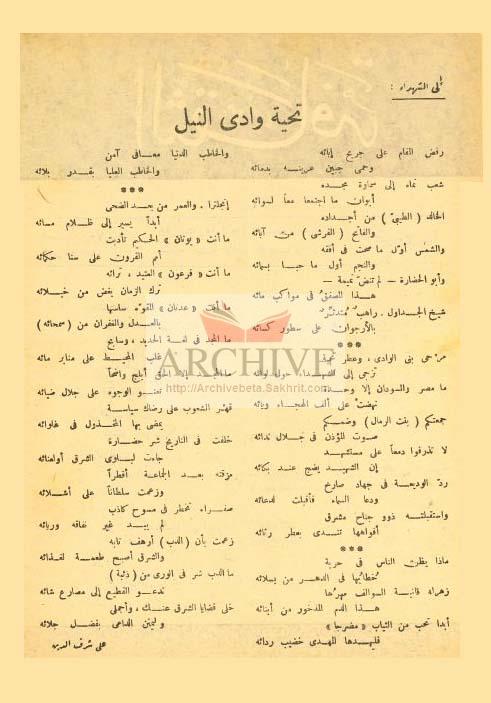 إلى الشهداء :
تحية وادى النيل
رفض المقام على جريح إبائه
وحمى جبين عرينه بدمائه
شعب نماه إلى سماوة مجده
أبوان ما اجتمعا معاً لسوائه
الخالد ( الطيبى ) من أجداده
والفاتح ( القرشى ) من آبائه
والشمس أول ما صحت فى أفقه
والنجم أول ما حبا بسمائه
وأبو الحضارة — لم تنض تميمة —
هذا المصفق فى مواكب مائه
شيخ الجداول . راهب
بالأرجوان على سطور كسائه
***
مرحى بنى الوادى ، وعطر تحية
تزجى إلى الشهداء حول لوائه
ما مصر والسودان إلا وحدة
نهضت على ألف الهجاء وبائه
جمعتكم ( بنت الرمال ) وضمكم
صوت المؤذن فى جلال ندائه
لا تذرفوا دمعاً على مستشهد
إن الشهيد يضج عند بكائه
ردّ الوديعة فى جهاد صارخ
ودعا السماء فأقبلت لدعائه
واستقبلته ذوو جناح مشرق
أفواهها تندى بعطر رثائه
***
ماذا يظن الناس فى حرية
خطابها فى الدهر من بسلائه
زهراء قانية السوالف مهرها
هذا الدم المدخور من أبنائه
أبدا تحب من الثياب « مضرجا »
فليهدها المهدى خضيب ردائه
والخاطب الدنيا معافى آمن
والخاطب العليا بقدر بلائه
***
إنجلترا . والعمر من بعد الضحى
أبداً يسير إلى ظلام مسائه
ما أنت « يونان » الحكيم تأدبت
أمم القرون على سنا حكمائه
ما أنت « فرعون » العتيد ، تراثه
ترك الزمان يغض من خيلائه
ما أنت « عدنان » القوىّ ساسها
بالعدل والغفران من ( سمحائه )
ما المجد فى لغة الحديد ، وسابح
غلب المحيط على منابر مائه
ما المجد إلا الحق أبلج واضحاً
تعنو الوجوه على جلال ضيائه
قهر الشعوب على رضاك سياسة
يمضى بها المخذول فى غلوائه
خلفت فى التاريخ شر حضارة
جاءت لبلوى الشرق أو لعنائه
مزقته بعد الجماعة أقطراً
وزعمت سلطاناً على أشلائه
صفراء تخطر فى مسوح كاذب
لم يبد غير نفاقه وريائه
زعمت بأن ( الدب ) أرهف نابه
والشرق أصبح طعمة لغذائه
ما الدب شر فى الورى من ( ذئبة )
تدعو القطيع إلى مصارع شائه
خلى قضايا الشرق عنك ، وأجملى
وليمن الداعى بفضل جلائه
على شرف الدين
ARCHIVE
http://Archivebeta.Sakhrit.com